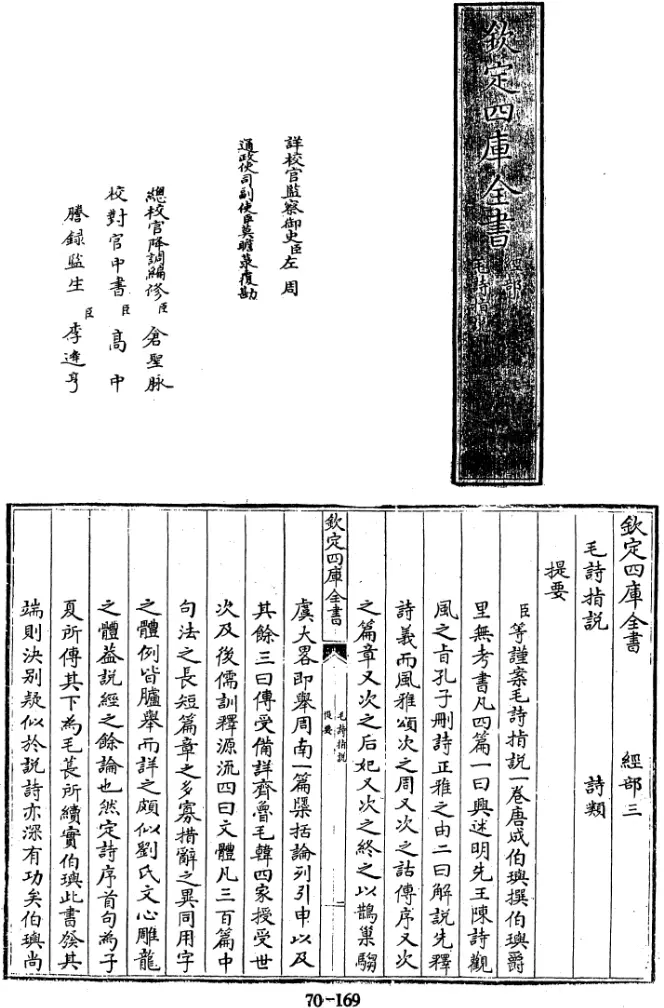 欽定四庫全書
經部
毛詩指說
詳校官監察御史臣左周
通政使司副使臣莫瞻菉覆勘
總校官降調編修臣倉聖脉
校對官中書臣高中
謄錄監生臣李逹亨
欽定四庫全書 經部三
毛詩指說 詩類
提要
臣等謹案毛詩指說一卷唐成伯璵撰伯璵爵
里無考書凡四篇一曰興述明先王陳詩觀
風之旨孔子刪詩正雅之由二曰解說先釋
詩義而風雅頌次之周又次之詁傳序又次
之篇章又次之后妃又次之終之以鵲巢騶
欽定四庫全書
毛詩指說
提要
一
虞大畧即舉周南一篇隱括論列引申以及
其餘三曰傳受備詳齊魯毛韓四家授受世
次及後儒訓釋源流四曰文體凡三百篇中
句法之長短篇章之多寡措辭之異同用字
之體例皆臚舉而詳之頗似劉氏文心雕龍
之體葢說經之餘論也然定詩序首句為子
夏所傳其下為毛萇所續實伯璵此書發其
端則決別疑似於說詩亦深有功矣伯璵尚
70-169